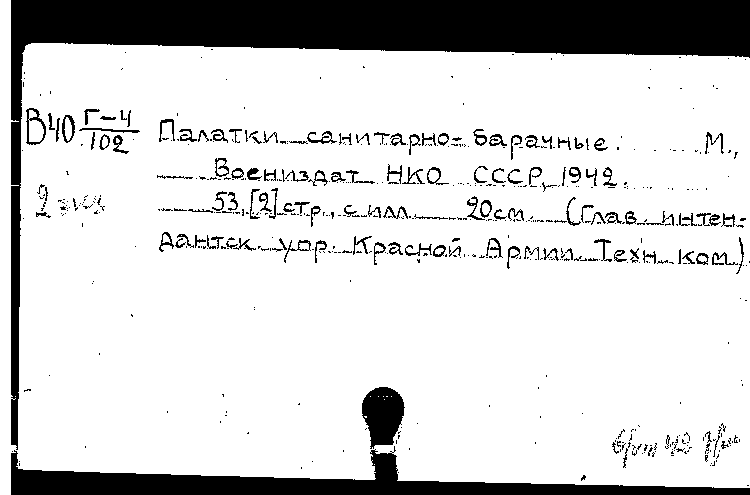 В40 Г-4/102 Палатки санитарно-барачные. М.,
Воениздат НКО СССР, 1942.
2 экз 53,[2] стр., с илл. 20см. (Глав. интен-
дантск. упр. Красной Армии. Техн. ком.)
42